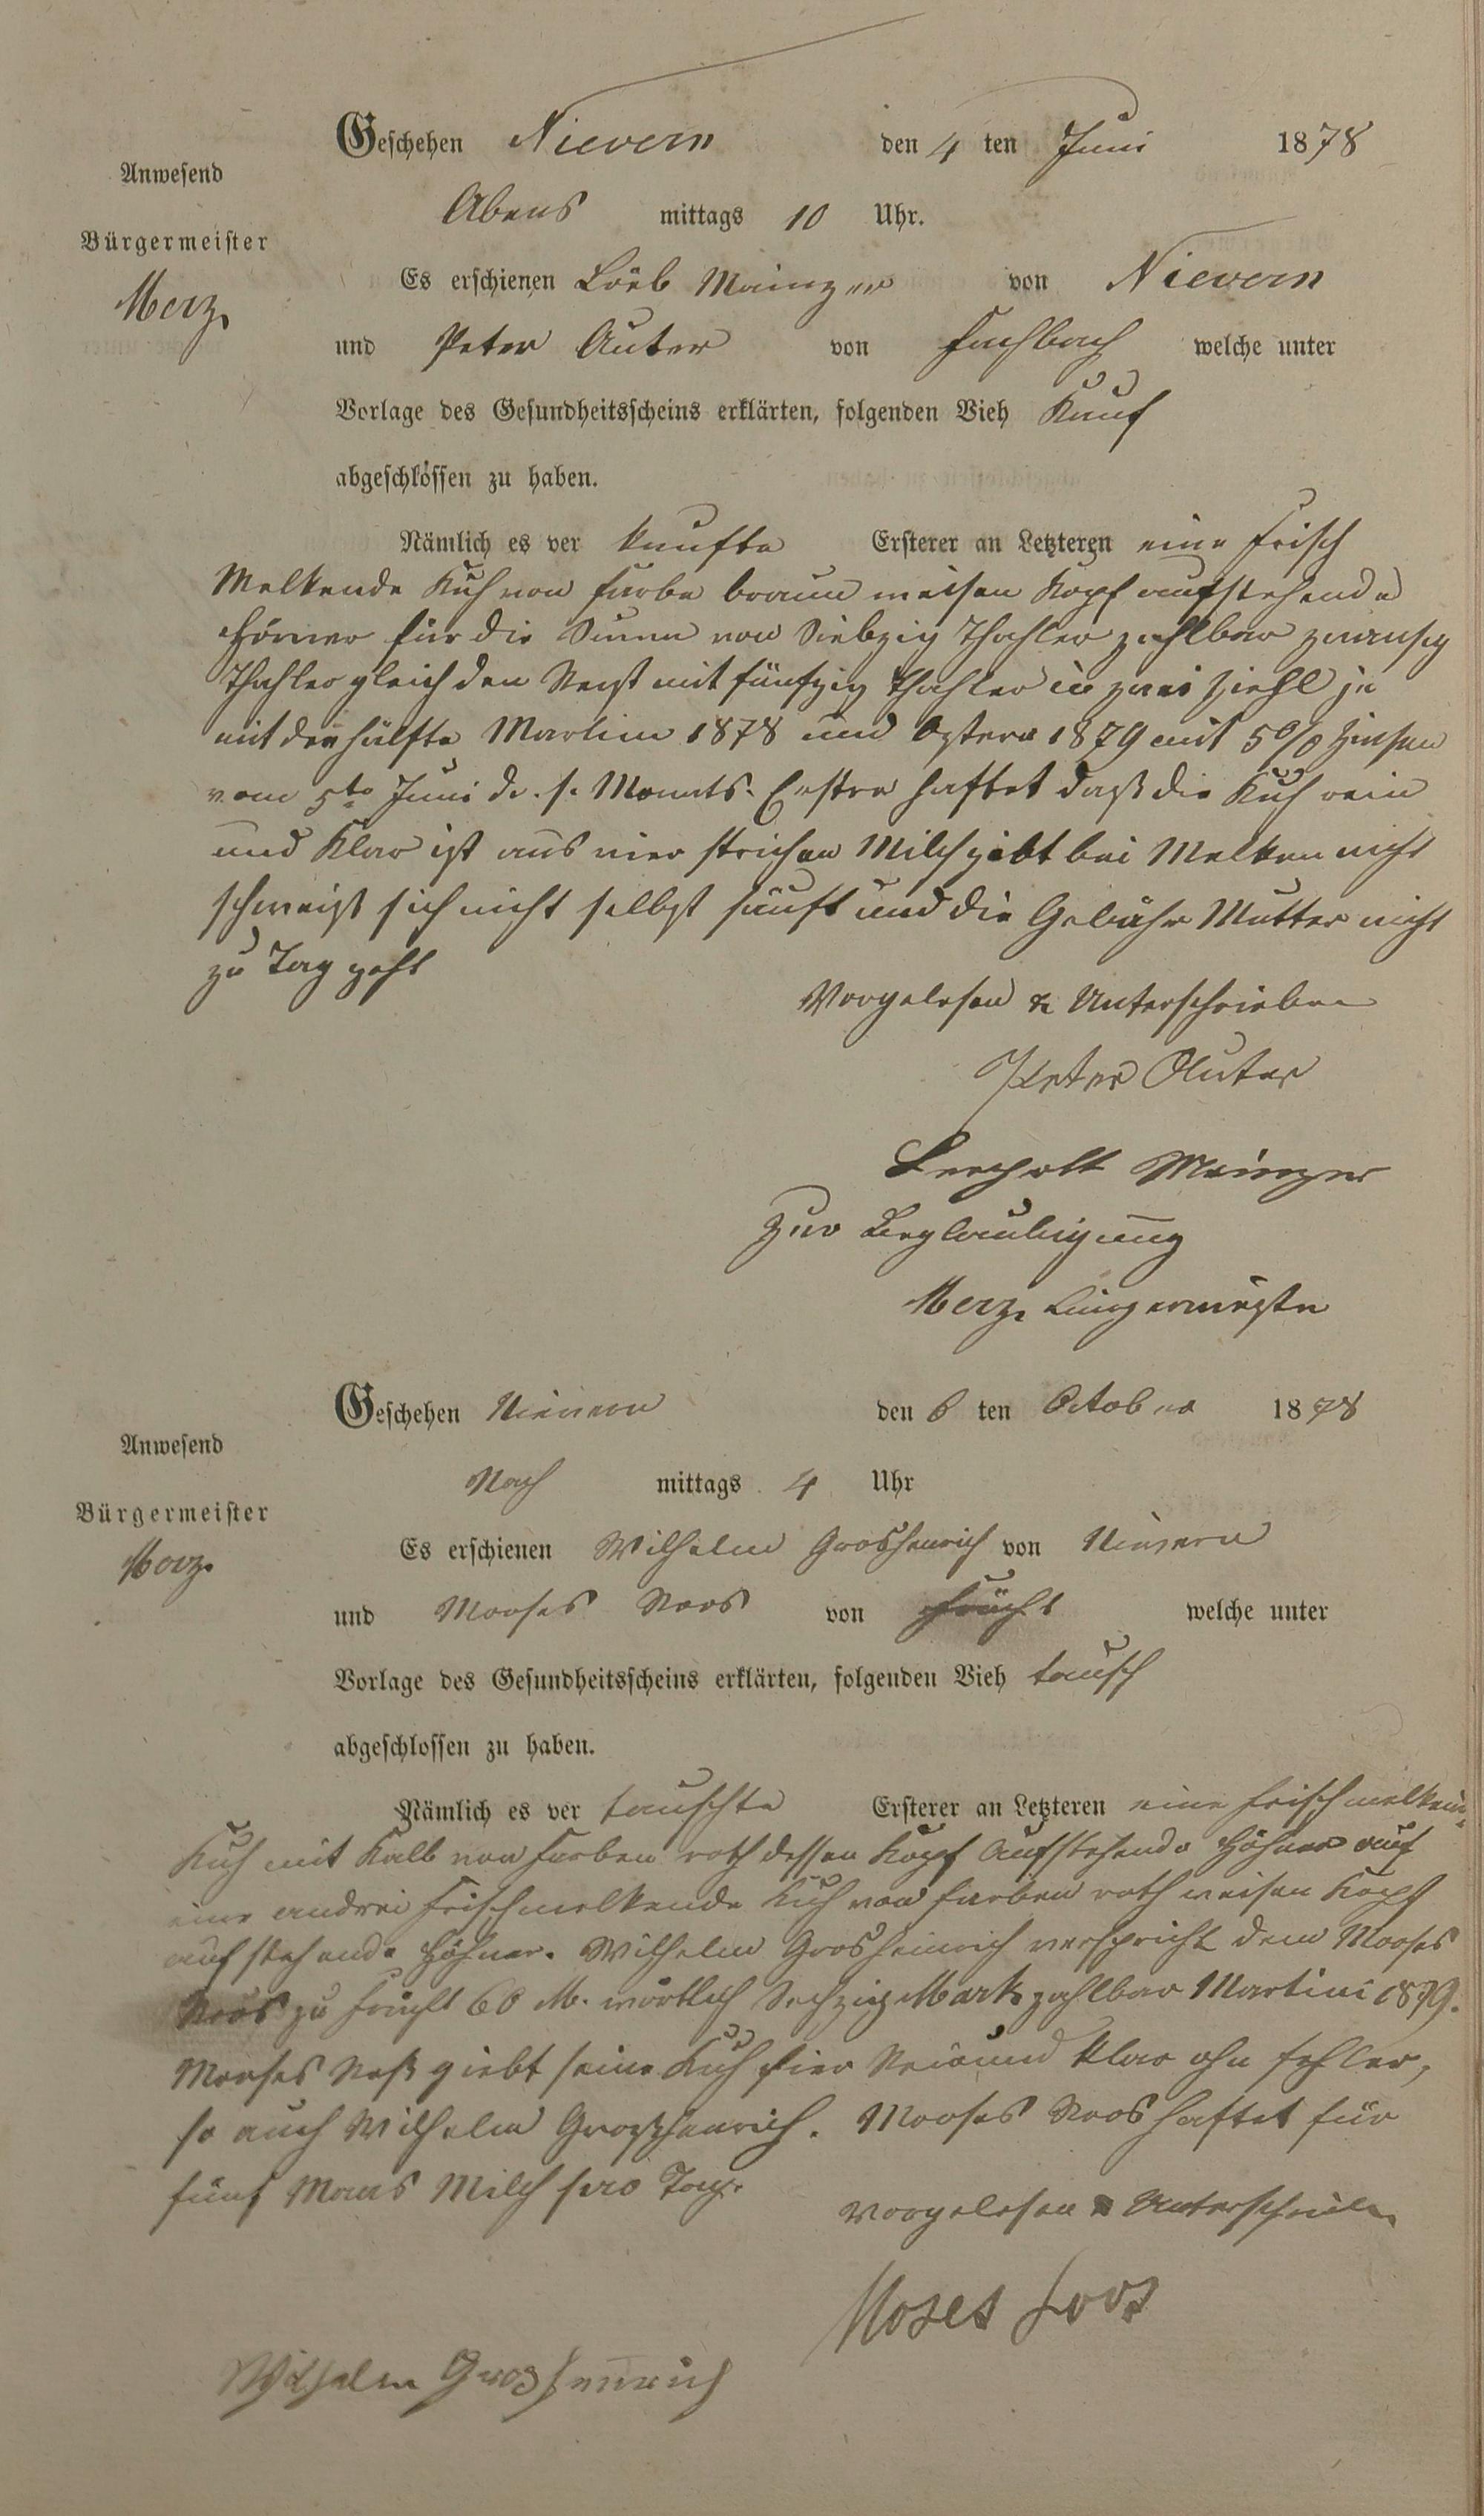 Geschehen Nievern den 4 ten Juni 1878
Anwesend
Abens mittags 10 Uhr.
Bürgermeister
Merz.
Es erschienen Löeb Mainzer von Nievern
und Peter Auter von Fachbach welche unter
Vorlage des Gesundheitsscheins erklärten, folgenden Vieh Kauf
abgeschlossen zu haben.
Nämlich es ver kaufte Ersterer an Letzteren eine frisch
Melkende Kuh von farbe braun weisen Kopf aufstehende
Hörner für die Summ von Siebzig Thahler zahlbar zwansig
Thahler gleich den Rest mit fünfzig Thahler in zwei Ziehl je
mit der hälfte Martini 1878 und Ostern 1879 mit 5% Zinsen
vom 5te Juni d. s. Monats. Erstre haftet daß die Kuh rein
und Klar ist aus vier strichen Milch gibt bei Melken nicht
schweist sich nicht selbst säuft und die Gebähr Mutter nicht
zu Tag geht
Vorgelesen & Unterschrieben
Peter Auter
Mainzer
Zur Beglaubigung
Merz, Bürgermeister
Geschehen Nievern den 6 ten October 1878
Anwesend
Nach mittags 4 Uhr
Bürgermeister
Merz.
Es erschienen Wilhelm Groshenrich von Nievern
und Mooses Roos von Frücht welche unter
Vorlage des Gesundheitsscheins erklärten, folgenden Vieh tausch
abgeschlossen zu haben.
Nämlich es ver tauschte Ersterer an Letzteren eine frisch melken-
Kuh mit Kalb von Farben roth dessen Kopf Aufstehende Höhner auf
eine andrei frischmelkende Kuh von farben roth weisen Kopf
aufstehende Höhner. Wilhelm Grosheinrich verspricht dem Mooses
Roos zu Frücht 60 M. wörtlich Sechzig Mark zahlbar Martini 1879.
Mooses Roß giebt seine Kuh für Rein und Klar ohn fehler,
so auch Wilhelm Großhenrich. Mooses Roos haftet für
fünf Maas Milch pro Tag.
Vorgelesen & Unterschrieben
Moses Roos
Wilhelm Großhenrich